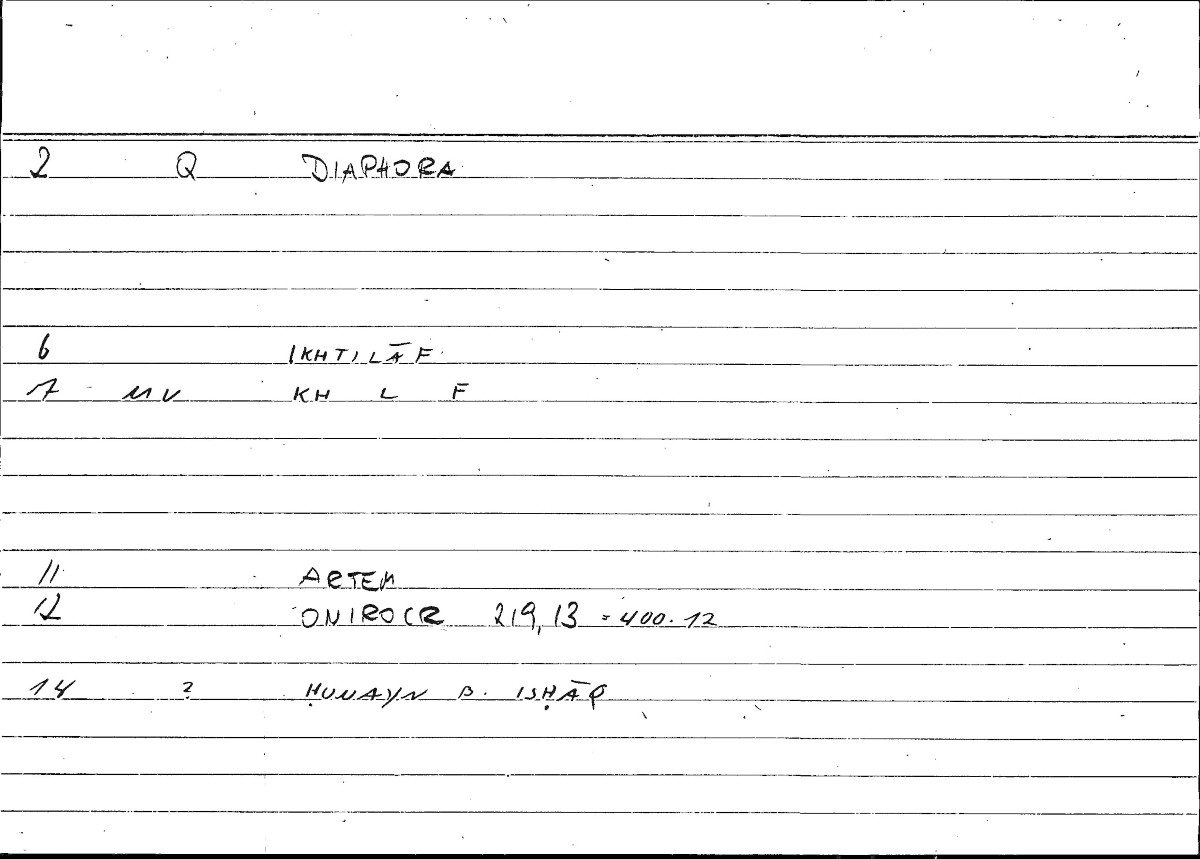 2 Q DIAPHORA
6 IKHTILĀF
7 MV KH L F
11 ARTEM
12 ONIROCR 219,13 = 400.12
14 ? ḤUNAYN B. ISḤĀQ